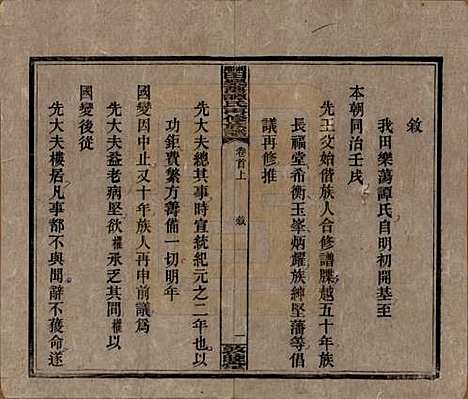 敘
我田樂蕩譚氏自明初開基至
本朝同治壬戌
先王父始偕族人合修譜牒越五十年族
長福堂希衡玉峯炳耀族紳堅藩等倡
議再修推
卷首上
敘
一
先大夫總其事時宣統紀元之二年也以
功鉅費繁方籌備一切明年
國變因中止又十年族人再申前議爲
先大夫益老病堅欲權承乏其間權以
國變後從
先大夫樓居凡事都不與聞辭不獲命遂